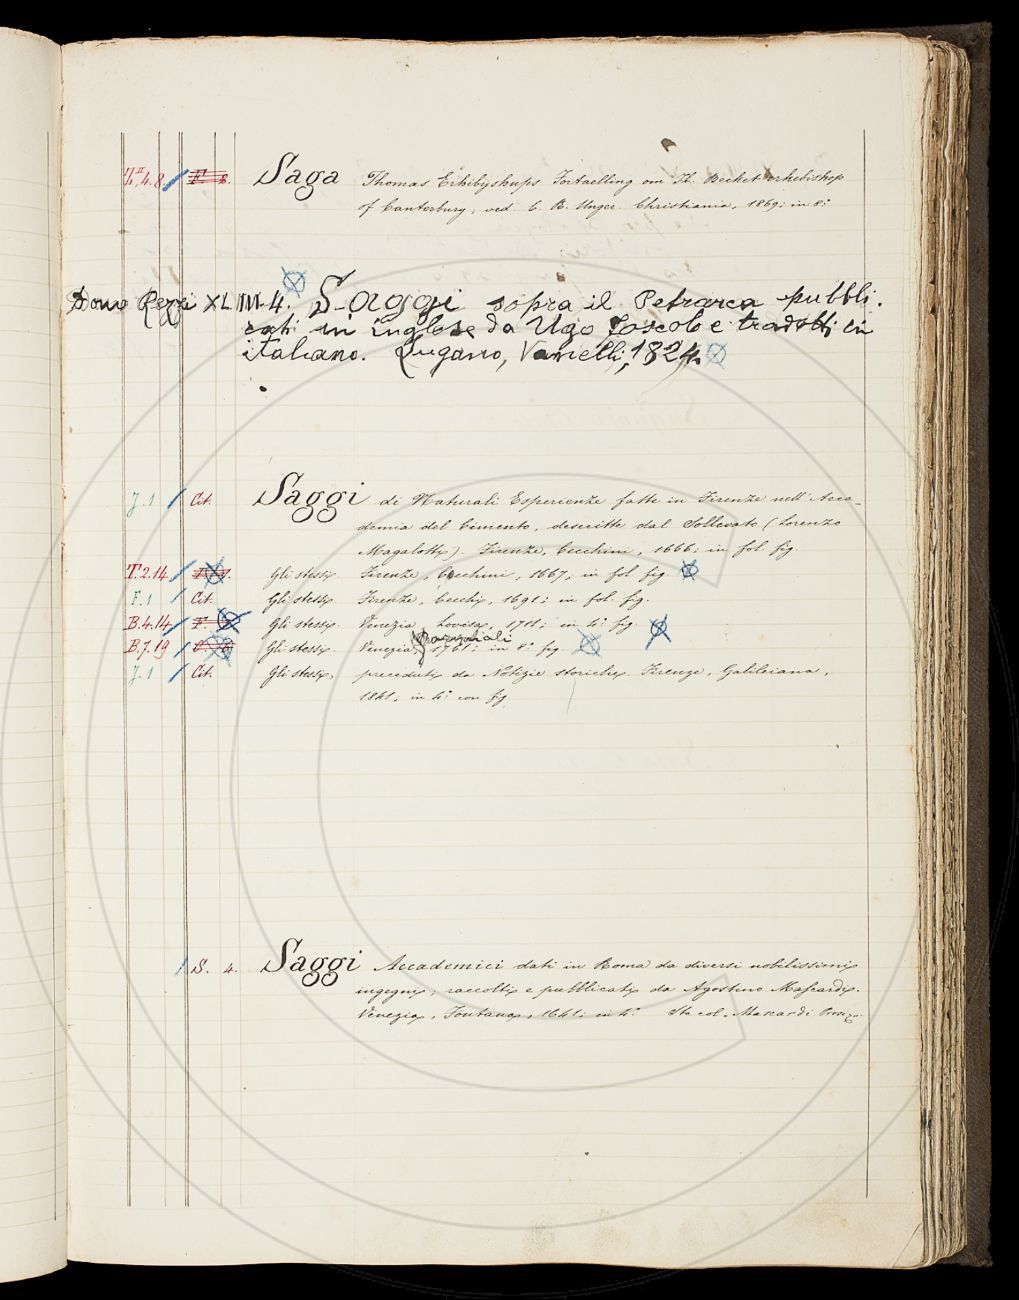 4.8. Saga Thomas Erkibyskups Fortaelling om Th. Becket erkebishop
of Canterbury, ved C. R. Unger. Christiania, 1869; in 8.°
Dono Rezzi XLIII-4. Saggi sopra il Petrarca pubbli.
cati in inglese da Ugo Foscolo e tradotti in
italiano. Lugano, Vanelli, 1824.
J. 1 Cit. Saggi di Naturali Esperienze fatte in Firenze nell' Acca-
demia del Cimento, descritte dal Sollevato (Lorenzo
Magalotti). Firenze, Cecchini, 1666; in fol. fig.
T.2.14 Gli stessi. Firenze, Cecchini, 1667, in fol. fig.
F. 1 Cit. Gli stessi. Firenze, Cecchi, 1691; in fol. fig.
B.4.14 Gli stessi. Venezia, Lovisa, 1711; in 4.° fig.
B.7.19 Gli stessi. Venezia, 1761; in 8.° fig.
J. 1 Cit. Gli stessi, preceduti da Notizie storiche. Firenze, Galileiana,
1841, in 4.° con fig.
S. 4. Saggi Accademici dati in Roma da diversi nobilissimi
ingegni, raccolti e pubblicati da Agostino Mascardi.
Venezia, Fontana, 1641; in 4.° Sta col. Mascardi Prose